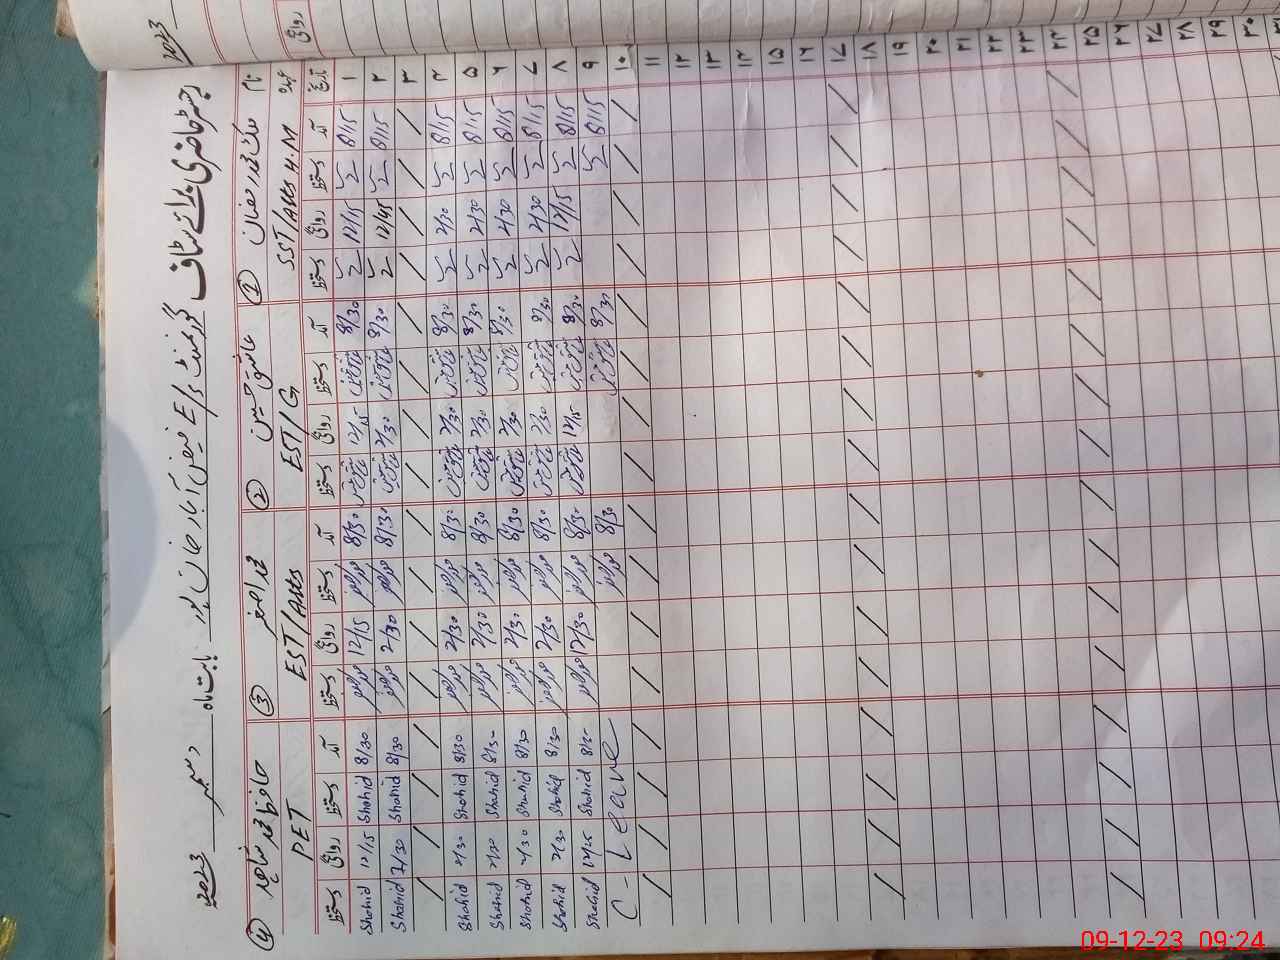 2023
رجسٹر حاضری برائے سٹاف گورنمنٹ فیض آباد خان پور بابت ماہ دسمبر 2023
نام ① ملک محمد رمضان ② عاشق حسین ③ محمد اصغر ④ حافظ محمد شاہد
عہدہ SST/Arts H.M EST/G EST/Arts PET
تاریخ آمد دستخط روانگی دستخط آمد دستخط روانگی دستخط آمد دستخط روانگی دستخط آمد دستخط روانگی دستخط
۱ 8/15 12/15 8/30 12/15 8/30 12/15 8/30 Shahid 12/15 Shahid
۲ 8/15 12/45 8/30 2/30 8/30 2/30 8/30 Shahid 2/30 Shahid
۳
۴ 8/15 2/30 8/30 2/30 8/30 2/30 8/30 Shahid 2/30 Shahid
۵ 8/15 2/30 8/30 2/30 8/30 2/30 8/30 Shahid 2/30 Shahid
۶ 8/15 2/30 8/30 2/30 8/30 2/30 8/30 Shahid 2/30 Shahid
۷ 8/15 2/30 8/30 2/30 8/30 2/30 8/30 Shahid 2/30 Shahid
۸ 8/15 12/15 8/30 12/15 8/30 12/30 8/30 Shahid Shahid
۹ 8/15 8/30 8/30 C-Leave
۱۰
۱۱
۱۲
۱۳
۱۴
۱۵
۱۶
۱۷
۱۸
۱۹
۲۰
۲۱
۲۲
۲۳
۲۴
۲۵
۲۶
۲۷
۲۸
۲۹
۳۰
روانگی
09-12-23 09:24